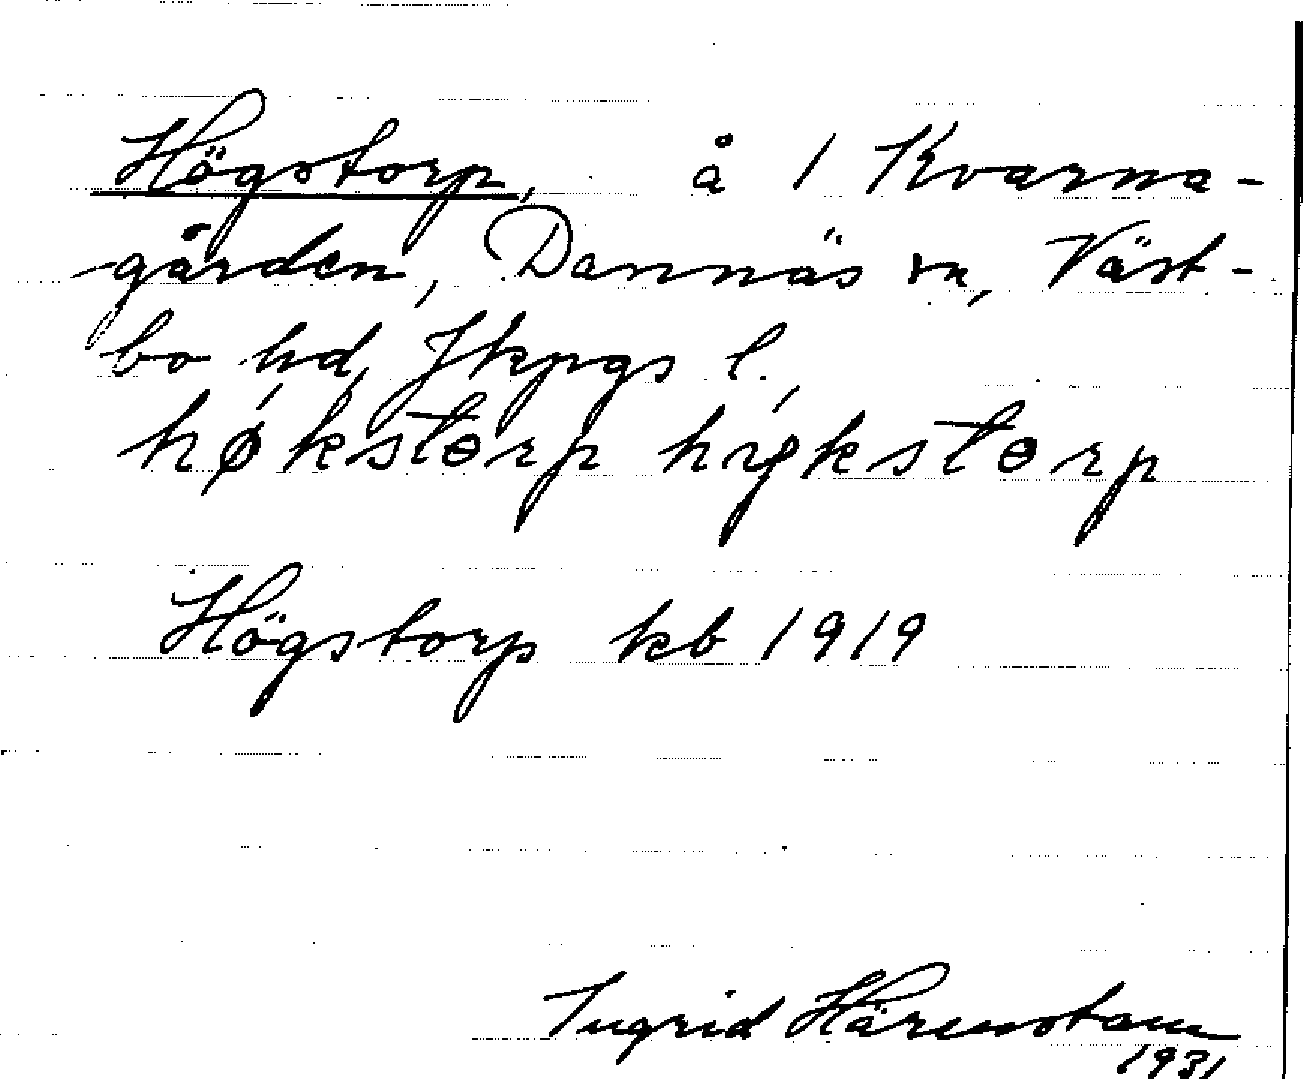 Högstorp, å 1 Kvarna-
gården, Dannäs sn, Väst-
bo hd, Jkpgs l.,
Högstorp kb 1919
Ingrid Härenstam
1931